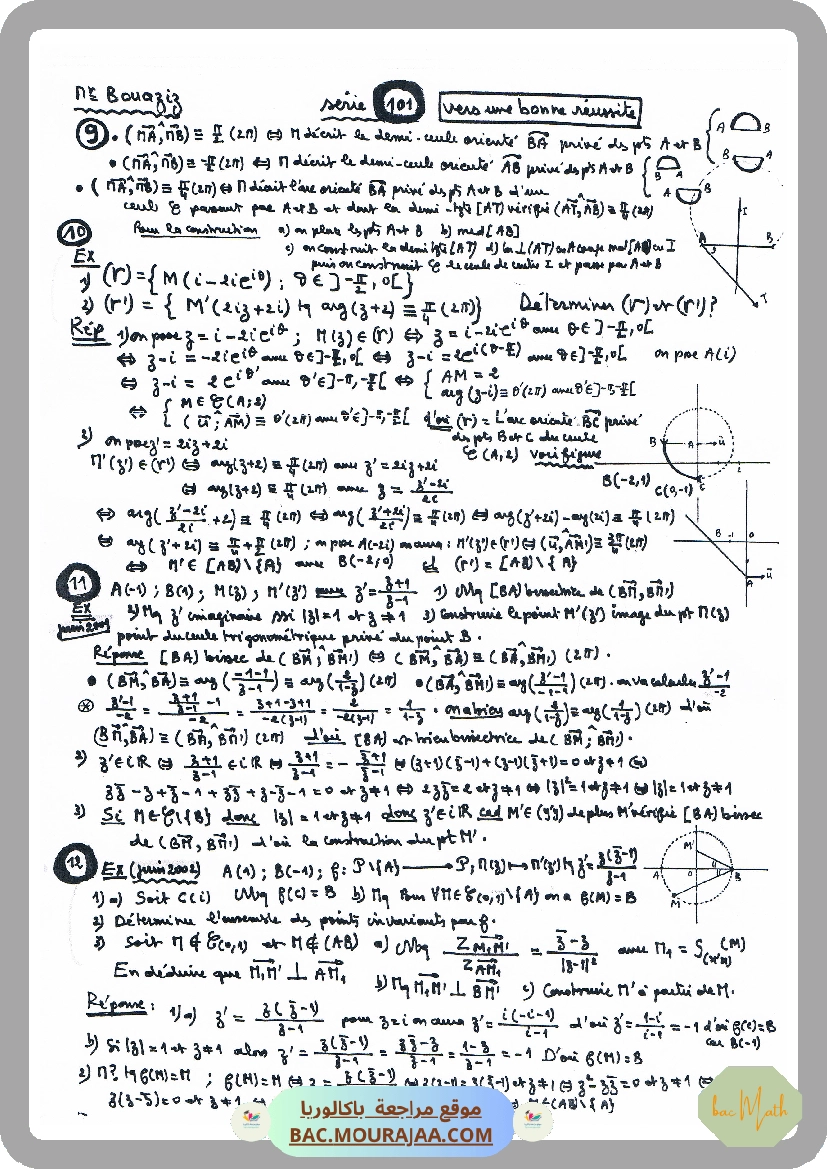 Mr Bouaziz série 101 vers une bonne réussite
9 • (MA, MB) ≡ π/2 (2π) ⇔ M décrit le demi-cercle orienté BA privé des pts A et B
• (MA, MB) ≡ -π/2 (2π) ⇔ M décrit le demi-cercle orienté AB privé des pts A et B
• (MA, MB) ≡ π/4 (2π) ⇔ M décrit l'arc orienté BA privé des pts A et B d'un
cercle ℰ passant par A et B et dont la demi-tgte [AT) vérifie (AT, AB) ≡ π/4 (2π)
10 Pour la construction a) on place les pts A et B b) med[AB]
c) on construit la demi tgte [AT) d) la ⊥ (AT) en A coupe med[AB] en I
puis on construit ℰ le cercle de centre I et passe par A et B
Ex
1) (Γ) = { M(i-2ie^{iθ}) ; θ ∈ ]-π/2, 0[ }
2) (Γ') = { M'(2iz+2i) tq arg(z+2) ≡ π/4 (2π) } Déterminer (Γ) et (Γ') ?
Rép 1) on pose z = i-2ie^{iθ} ; M(z) ∈ (Γ) ⇔ z = i-2ie^{iθ} avec θ ∈ ]-π/2, 0[
⇔ z-i = -2ie^{iθ} avec θ ∈ ]-π/2, 0[ ⇔ z-i = 2e^{i(θ-π/2)} avec θ ∈ ]-π/2, 0[ on pose A(i)
⇔ z-i = 2e^{iθ'} avec θ' ∈ ]-π, -π/2[ ⇔ { AM = 2
arg(z-i) ≡ θ' (2π) avec θ' ∈ ]-π, -π/2[
⇔ { M ∈ ℰ(A; 2)
(u, AM) ≡ θ' (2π) avec θ' ∈ ]-π, -π/2[ d'où (Γ) = L'arc orienté BC privé
des pts B et C du cercle
ℰ(A, 2) voir figure
B(-2,1) C(0,-1)
2) on pose z' = 2iz+2i
M'(z') ∈ (Γ') ⇔ arg(z+2) ≡ π/4 (2π) avec z' = 2iz+2i
⇔ arg(z+2) ≡ π/4 (2π) avec z = (z'-2i)/2i
⇔ arg((z'-2i)/2i + 2) ≡ π/4 (2π) ⇔ arg((z'+2i)/2i) ≡ π/4 (2π) ⇔ arg(z'+2i) - arg(2i) ≡ π/4 (2π)
⇔ arg(z'+2i) ≡ π/4 + π/2 (2π) ; on pose A(-2i) on aura : M'(z') ∈ (Γ') ⇔ (u, AM') ≡ 3π/4 (2π)
⇔ M' ∈ [AB) \ {A} avec B(-2,0) (Γ') = [AB) \ {A}
11 A(-1) ; B(1) ; M(z) ; M'(z') avec z' = (z+1)/(z-1) 1) Mq [BA) bissectrice de (BM, BM')
Ex
Juin 2001
2) Mq z' imaginaire ssi |z| = 1 et z ≠ 1 3) Construire le point M'(z') image du pt M(z)
point du cercle trigonométrique privé du point B.
Réponse [BA) bissec de (BM, BM') ⇔ (BM, BA) ≡ (BA, BM') (2π).
• (BM, BA) ≡ arg((-1-1)/(z-1)) ≡ arg(2/(1-z)) (2π) • (BA, BM') ≡ arg((z'-1)/(-1-1)) (2π). on va calculer (z'-1)/-2
⊛ (z'-1)/-2 = ((z+1)/(z-1) - 1)/-2 = (z+1-z+1)/(-2(z-1)) = 2/(-2(z-1)) = 1/(1-z). on a bien arg(2/(1-z)) ≡ arg(1/(1-z)) (2π) d'où
(BM, BA) ≡ (BA, BM') (2π) d'où [BA) est bien bissectrice de (BM, BM').
2) z' ∈ iℝ ⇔ (z+1)/(z-1) ∈ iℝ ⇔ (z+1)/(z-1) = -(z̄+1)/(z̄-1) ⇔ (z+1)(z̄-1)+(z-1)(z̄+1) = 0 et z ≠ 1 ⇔
zz̄-z+z̄-1+zz̄+z-z̄-1 = 0 et z ≠ 1 ⇔ 2zz̄ = 2 et z ≠ 1 ⇔ |z|² = 1 et z ≠ 1 ⇔ |z| = 1 et z ≠ 1
3) Si M ∈ ℰ \ {B} donc |z| = 1 et z ≠ 1 donc z' ∈ iℝ cad M' ∈ (y'y) de plus M' vérifie [BA) bissec
de (BM, BM') d'où la construction du pt M'.
12 Ex (juin 2002) A(1) ; B(-1) ; f : P \ {A} → P, M(z) ↦ M'(z') tq z' = z(z̄-1)/(z-1)
1) a) Soit C(i) Mq f(C) = B b) Mq Pour ∀M ∈ ℰ(0,1) \ {A} on a f(M) = B
2) Déterminer l'ensemble des points invariants par f.
3) Soit M ∉ ℰ(0,1) et M ∉ (AB) a) Mq Z_{M₁M'} / Z_{AM₁} = (z̄-z)/|z-1|² avec M₁ = S_{(x'x)}(M)
En déduire que M₁M' ⊥ AM₁ b) Mq M₁M' ⊥ BM' c) Construire M' à partir de M.
Réponse : 1) a) z' = z(z̄-1)/(z-1) pour z = i on aura z' = i(-i-1)/(i-1) d'où z' = (1-i)/(i-1) = -1 d'où f(C) = B
car B(-1)
b) Si |z| = 1 et z ≠ 1 alors z' = z(z̄-1)/(z-1) = (zz̄-z)/(z-1) = (1-z)/(z-1) = -1 D'où f(M) = B
2) M? tq f(M) = M ; f(M) = M ⇔ z = z(z̄-1) ⇔ z(z-1) = z(z̄-1) et z ≠ 1 ⇔ z² - zz̄ = 0 et z ≠ 1 ⇔
z(z-z̄) = 0 et z ≠ 1 ⇔ M ∈ (AB) \ {A}
موقع مراجعة باكالوريا
BAC.MOURAJAA.COM
bac Math